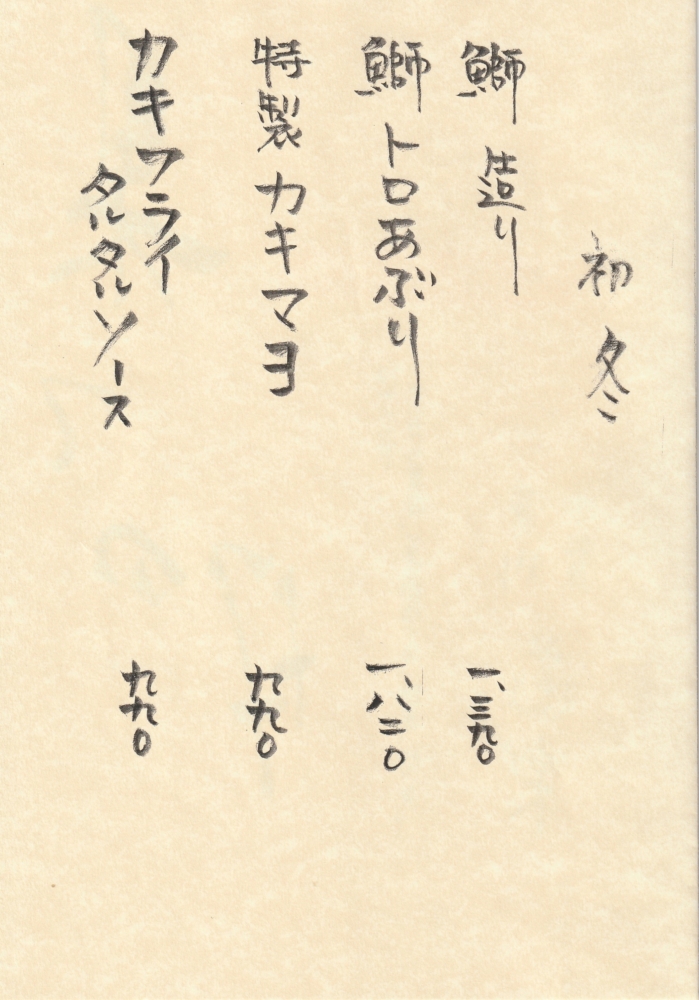 初冬
鰤 造り 一、三九〇
鰤 トロあぶり 一、八二〇
特製 カキマヨ 九九〇
カキフライ
タルタルソース 九九〇